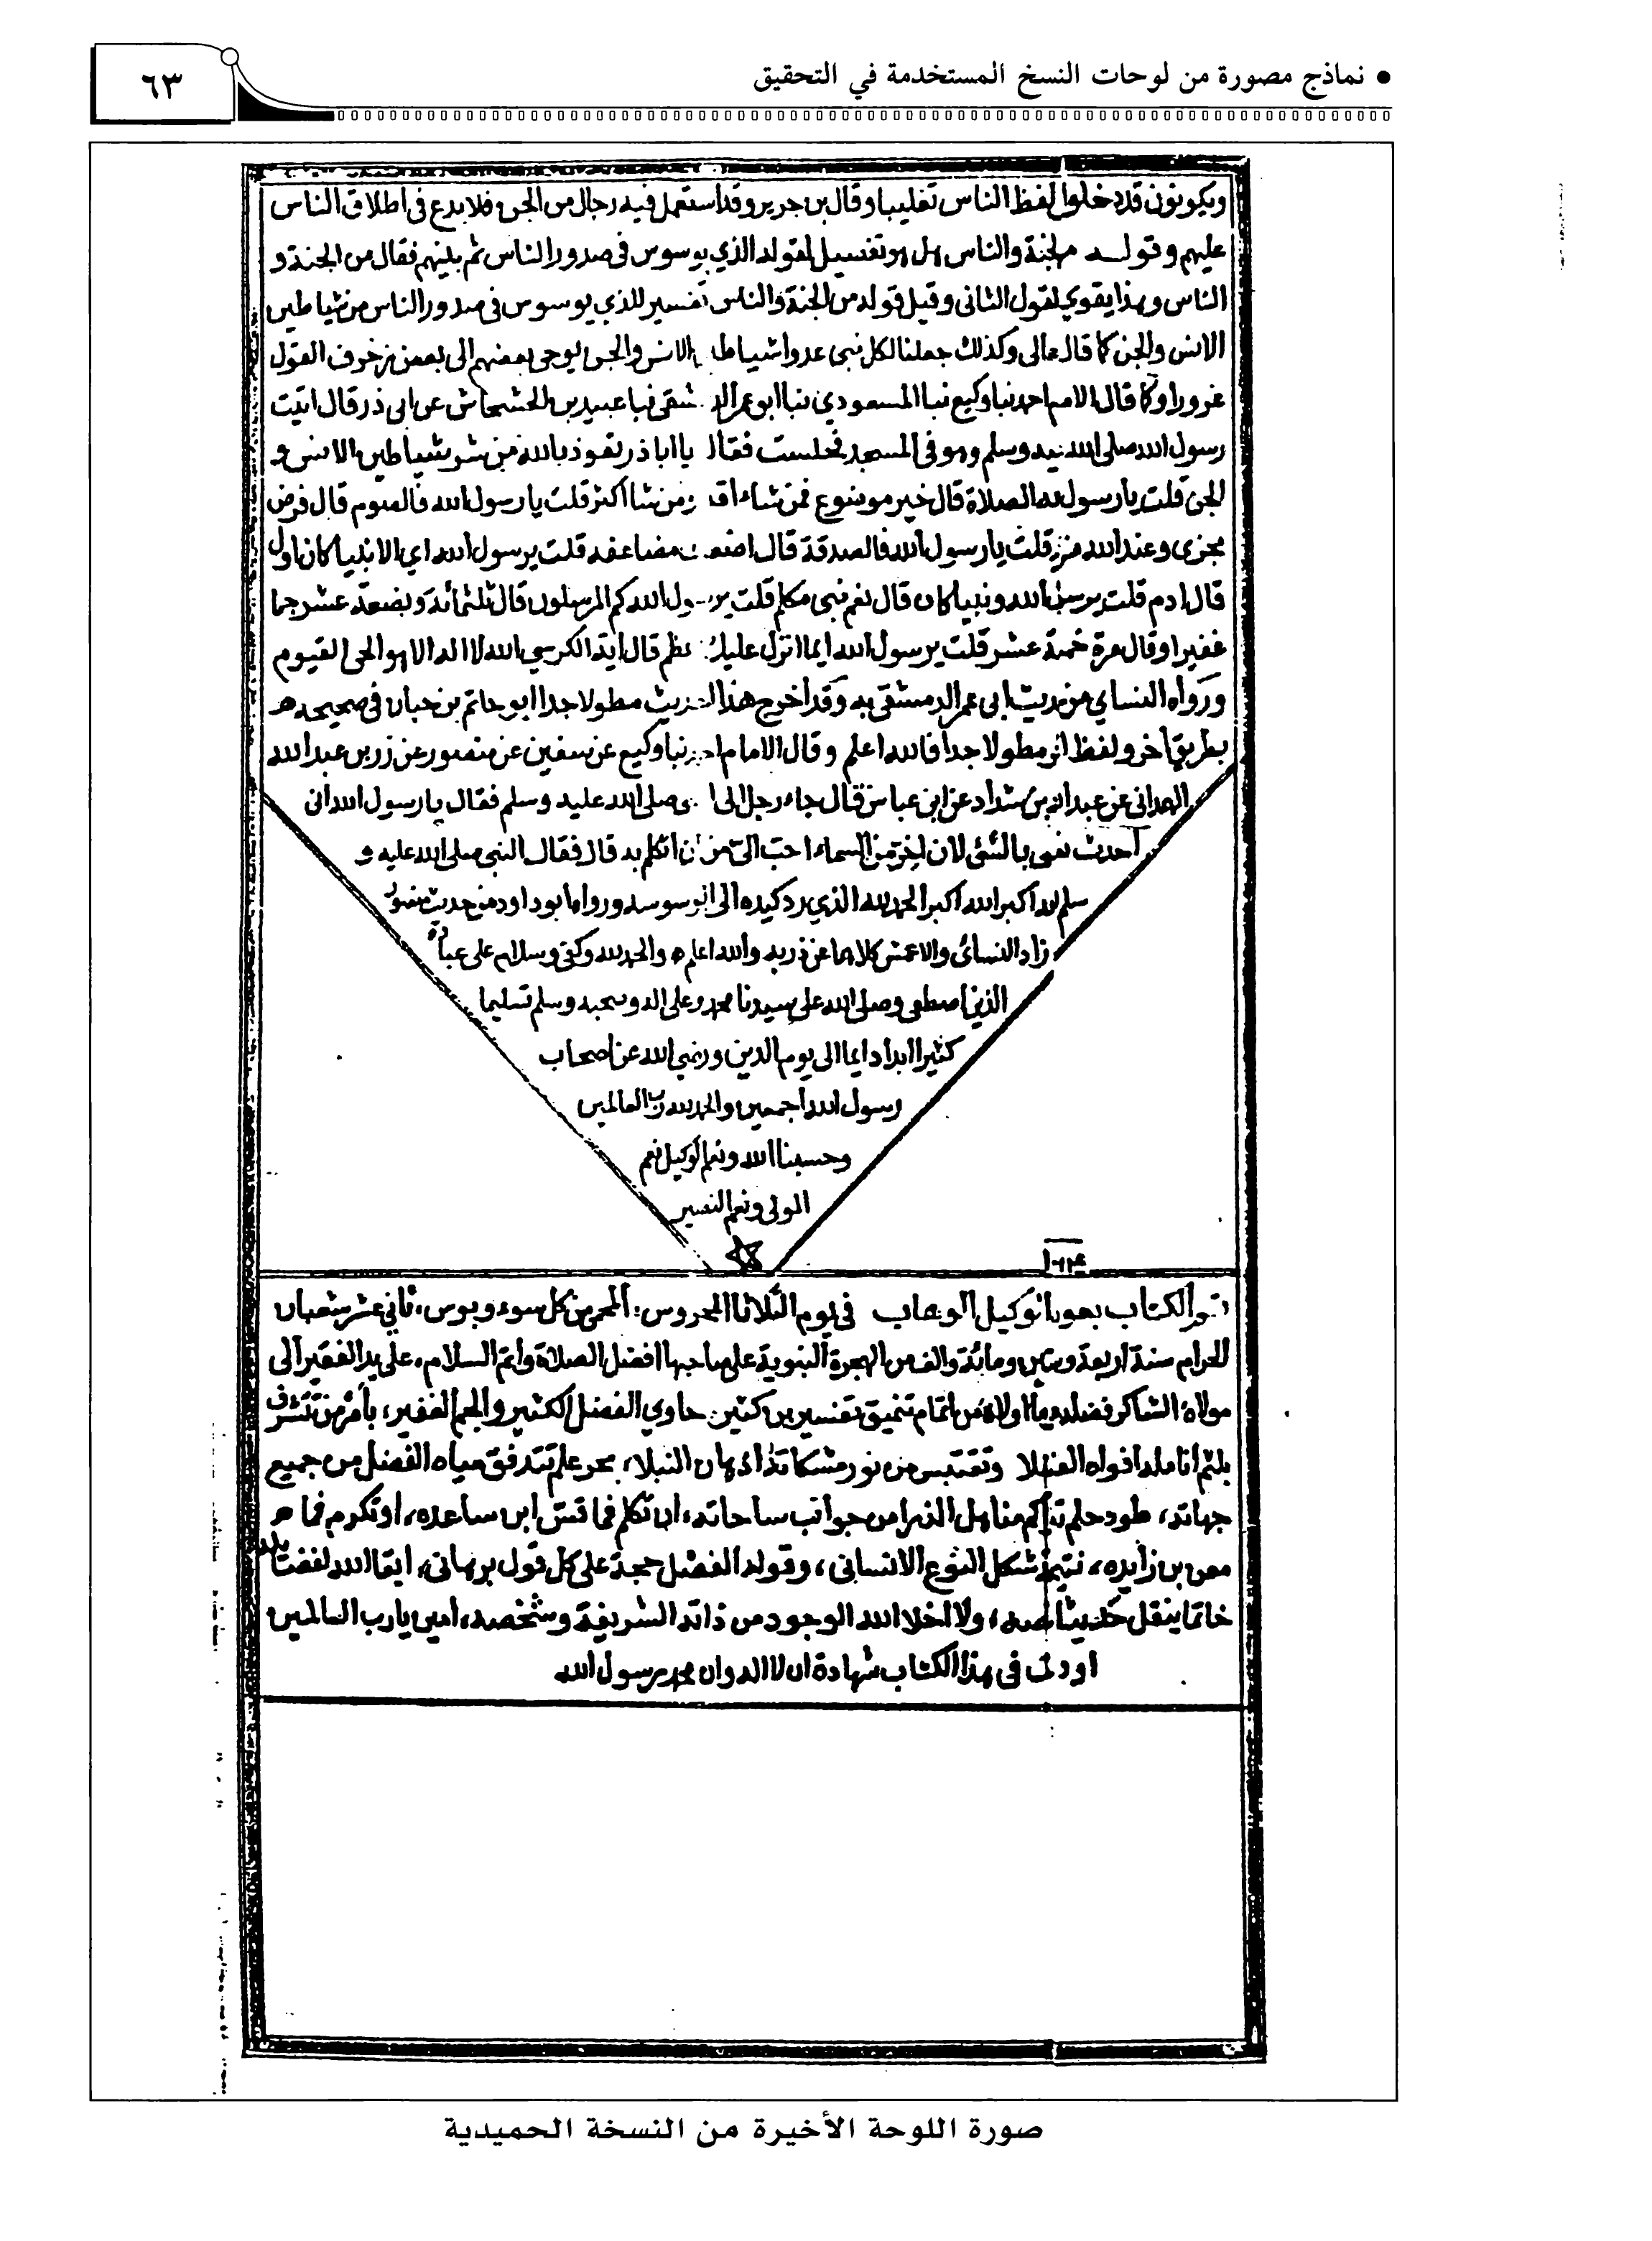 • نماذج مصورة من لوحات النسخ المستخدمة في التحقيق
٦٣
ويكونون قد دخلوا لفظ الناس تغليبا وقال بن جرير وقد استعمل فيه رجال من الجن فلا بدع في اطلاق الناس
عليهم وقوله من الجنة والناس هل هو تفصيل لقوله الذي يوسوس في صدور الناس ثم بينهم فقال من الجنة و
الناس وهذا يقوي لقول الثاني وقيل قوله من الجنة والناس تفسير للذي يوسوس في صدور الناس من شياطين
الانس والجن كما قال تعالى وكذلك جعلنا لكل نبي عدوا شياط الانس والجن يوحي بعضهم الى بعض زخرف القول
غرورا وكما قال الامام احمد نبا وكيع نبا المسعودي نبا ابو عمر الد شقي نبا عبيد بن الخشخاش عن ابي ذر قال اتيت
رسول الله صلى الله عليه وسلم وهو في المسجد فجلست فقال يا ابا ذر تعوذ بالله من شر شياطين الانس و
الجن قلت يا رسول الله الصلاة قال خير موضوع فمن شاء اقل ومن شا اكثر قلت يا رسول الله فالصوم قال فرض
مجزى وعند الله مزيد قلت يا رسول الله فالصدقة قال اضعاف مضاعفه قلت يرسول الله اي الانبيا كان اول
قال ادم قلت يرسول الله ونبيا كان قال نعم نبي مكلم قلت يرسول الله كم المرسلون قال ثلثمائة وبضعة عشر جما
غفيرا وقال مرة خمسة عشر قلت يرسول الله ايما انزل عليك اعظم قال اية الكرسي الله لا اله الا هو الحي القيوم
ورواه النساي من حديث ابي عمر الدمشقي به وقد اخرج هذا الحديث مطولا جدا ابو حاتم بن حبان في صحيحه
بطريق اخر ولفظ اخر مطولا جدا فالله اعلم وقال الامام احمد نبا وكيع عن سفين عن منصور عن زر بن عبد الله
الهمداني عن عبد الله بن شداد عن ابن عباس قال جاء رجل الى النبي صلى الله عليه وسلم فقال يا رسول الله اني
احدث نفسي بالشئ لان اخر من السماء احب الي من ان اتكلم به قال فقال النبي صلى الله عليه و
سلم الله اكبر الله اكبر الحمد لله الذي رد كيده الى الوسوسه ورواه ابو داود من حديث منصور
زاد النسائي والاعمش كلاهما عن ذر به والله اعلم والحمد لله وكفى وسلام على عباده
الذين اصطفى وصلى الله على سيدنا محمد وعلى اله وصحبه وسلم تسليما
كثيرا ابدا دايما الى يوم الدين ورضي الله عن اصحاب
رسول الله اجمعين والحمد لله رب العالمين
وحسبنا الله ونعم الوكيل نعم
المولى ونعم النصير
الكتاب بعون الوكيل الوهاب في يوم الثلاثا المحروس، المحمى من كل سوء وبوس، ثاني عشر شعبان
الحرام سنة اربعة وستين ومائة والف من الهجرة النبوية على صاحبها افضل الصلاة واتم السلام، على يد الفقير الى
مولاه الشاكر فضله وما اولاه من اتمام تنميق تفسير بن كثير حاوي الفضل الكثير والجم الغفير، بأمر من تتشرف
بلثم انامله افواه الفضلا وتقتبس من نور مشكاته اذهان النبلا، بحر علم تتدفق مياه الفضل من جميع
جهاته، طود حلم مناهل من جوانب ساحاته، ان تكلم فما قس ابن ساعده، او تكرم فما
معن بن زايده، شكل النوع الانساني، وقوله الفضل حجة على كل قول برهاني، ابقا الله
خاتما ينقل ولا اخلا الله الوجود من ذاته الشريفة وشخصه، امين يا رب العالمين
اودعت في هذا الكتاب شهادة ان لا اله الا الله وان محمد رسول الله
صورة اللوحة الأخيرة من النسخة الحميدية